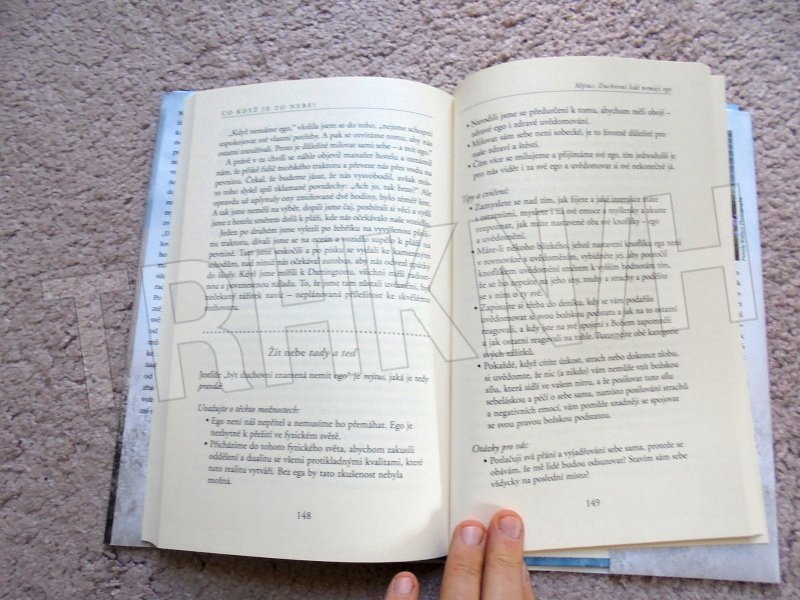 CO KDYŽ JE TO NEBE?
„Když nemáme ego,“ vložila jsem se do toho, „nejsme schopni
uspokojovat své vlastní potřeby. A pak se otvíráme tomu, aby nás
ostatní zneužívali. Proto je důležité milovat sami sebe – a mít ego.“
A právě v tu chvíli se náhle objevil manažer hotelu a oznámil
nám, že přišel řidič mořského traktoru a převeze nás přes vodu na
pevninu. Čekal, že budeme jásat, že nás vysvobodil, avšak místo
toho slyšel spíš zklamané povzdechy: „Ach jo, tak brzo?“ Ale
opravdu už uplynuly ony zmiňované dvě hodiny, bylo téměř šest.
A tak jsme neměli na výběr, dopili jsme čaj, posbírali si věci a vyšli
jsme z hotelu směrem dolů k pláži, kde nás očekávalo naše vozidlo.
Jeden po druhém jsme vyšli po žebříku na vyvýšenou plošinu
traktoru, dívali jsme se na oceán a vozidlo supělo k pláži na
pevnině. Tam jsme seskočili a po písku se vydali ke kamenným
schodům, nad nimiž nás očekával autobus, aby nás odvezl zpátky
do školy. Když jsme mířili k Dartingtonu, všichni měli radostnou
a povznesenou náladu. To, že jsme tam zůstali uvězněni, byl
nečekaný zážitek navíc – neplánovaná příležitost ke skvělému
rozhovoru.
Žít nebe tady a teď
Jestliže „být duchovní znamená nemít ego“ je mýtus, jaká je tedy
pravda?
Uvažujte o těchto možnostech:
• Ego není náš nepřítel a nemusíme ho přemáhat. Ego je
nezbytné k přežití ve fyzickém světě.
• Přicházíme do tohoto fyzického světa, abychom zakusili
oddělení a dualitu se všemi protikladnými kvalitami, které
tuto realitu vytváří. Bez ega by tato zkušenost nebyla
možná.
148
Mýtus: Duchovní lidé nemají ego
• Narodili jsme se předurčeni k tomu, abychom měli obojí –
zdravé ego i zdravé uvědomování.
• Milovat sám sebe není sobecké, je to životně důležité pro
naše zdraví a štěstí.
• Čím více se milujeme a přijímáme své ego, tím jednodušší je
pro nás vidět i za své ego a uvědomovat si své nekonečné já.
Tipy a cvičení:
• Zamyslete se nad tím, jak žijete a jaké interakce máte
s ostatními, myslete i na své emoce a myšlenky a zkuste
rozpoznat, jak máte nastavené oba své knoflíky – ego
a uvědomění.
• Máte-li někoho blízkého, jehož nastavení knoflíku ega není
v rovnováze s uvědoměním, vybídněte jej, aby pootočil
knoflíkem uvědomění směrem k vyšším hodnotám tím,
že se ho zeptáte na jeho sny, touhy a strachy a podělíte
se s ním o ty své.
• Zapisujte si třeba do deníku, kdy se vám podařilo
uvědomovat si svou božskou podstatu a jak na to ostatní
reagovali, a kdy jste na své spojení s Bohem zapomněli
a jak ostatní reagovali na tohle. Porovnejte obě kategorie
svých zážitků.
• Pokaždé, když cítíte úzkost, strach nebo dokonce zlobu,
si uvědomte, že nic (a nikdo) vám nemůže vzít božskou
sílu, která sídlí ve vašem nitru, a že posilovat tuto sílu
sebeláskou a péčí o sebe sama, namísto posilování strachů
a negativních emocí, vám pomůže snadněji se spojovat
se svou pravou božskou podstatou.
Otázky pro vás:
• Potlačuji svá přání a vyjadřování sebe sama, protože se
obávám, že mě lidé budou odsuzovat? Stavím sám sebe
vždycky na poslední místo?
149
TRHKNIH